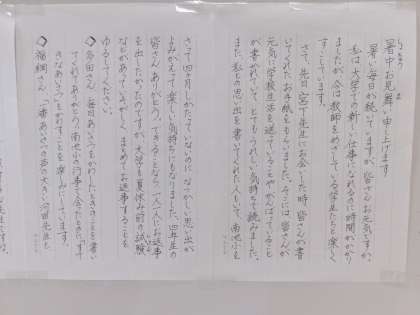 しょちゅう
暑中お見舞い申し上げます。
暑い毎日が続いていますが、皆さんお元気ですか。
私は大学での新しい仕事になれるのに時間がかかり
ましたが、今は教師をめざしている学生たちと楽しく
すごしています。
さて、先日、宮下先生にお会いした時、皆さんが書
いてくれたお手紙をもらいました。そこには皆さんが
元気に学校生活を送っていることやがんばっていること
が書かれていて、とてもうれしい気持ちで読みました。
また、私との思い出を書いてくれた人もいて、南池小を
さって四ヶ月しかたっていないのに、なつかしい思い出が
よみがえってきて楽しい気持ちにもなりました。四年生の
皆さん、ありがとう。できることなら一人一人にお返事
を出したいのですが、大学も夏休み前の試験
などがあってきびしく、まとめてお返事することを
ゆるしてください。
◇多田さん 毎日あいさつをかわしたときのことを書い
てくれてありがとう。南池小の行事で会えたときには、すて
きなあいさつをかわすことを楽しみにしています。
◇福綱さん 「一番あいさつの声の大きい